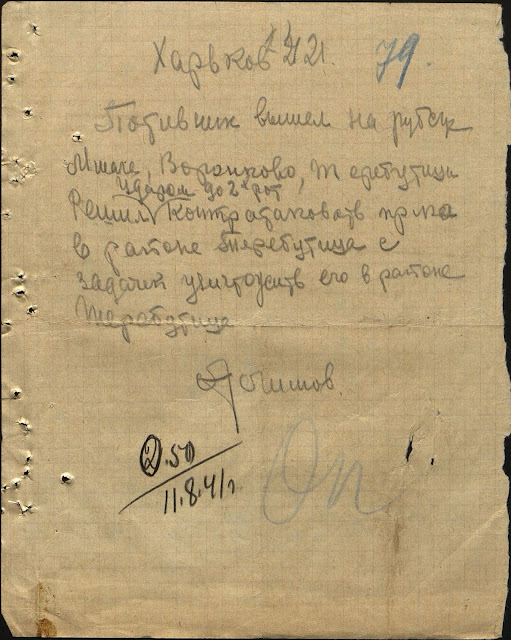 Харьков 421. 79.
Противник вышел на рубеж
Мшаге, Воронково, Теребутицы
ударом до 2х рот
Решил контратаковать пр-ка
в районе Теребутица с
задачей уничтожить его в районе
Теребутица
2.50
11.8.41г
Оп